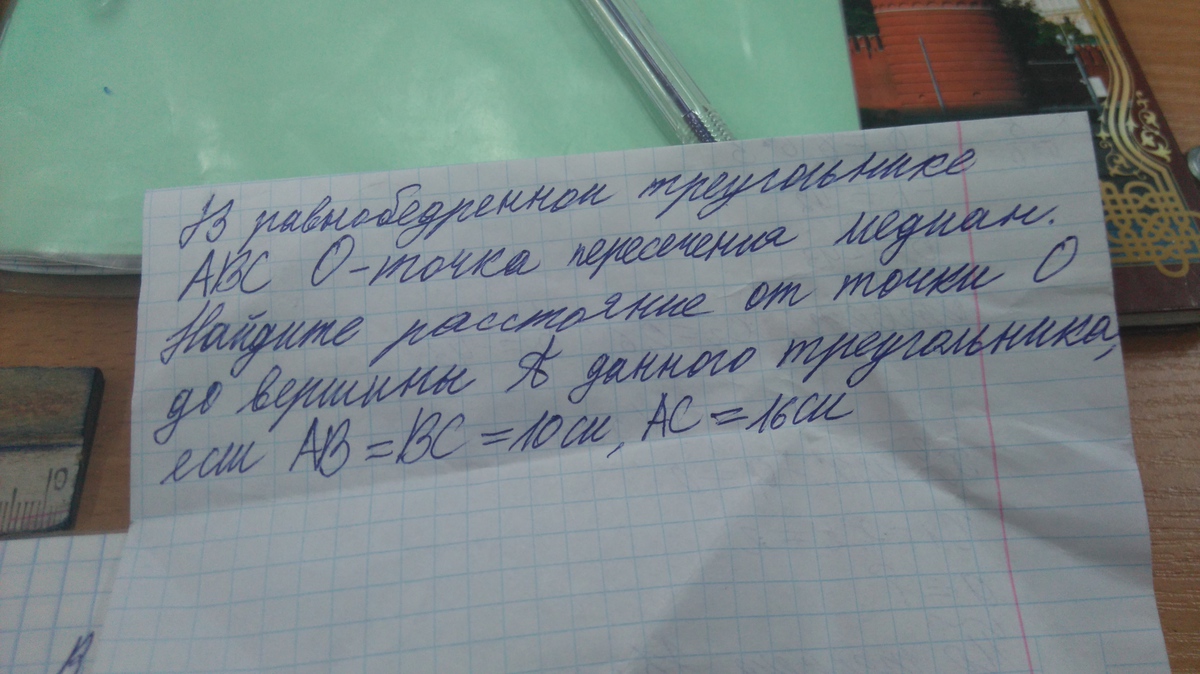 В равнобедренном треугольнике
ABC О-точка пересечения медиан.
Найдите расстояние от точки О
до вершины А данного треугольника,
если AB=BC=10см, AC=16см
10